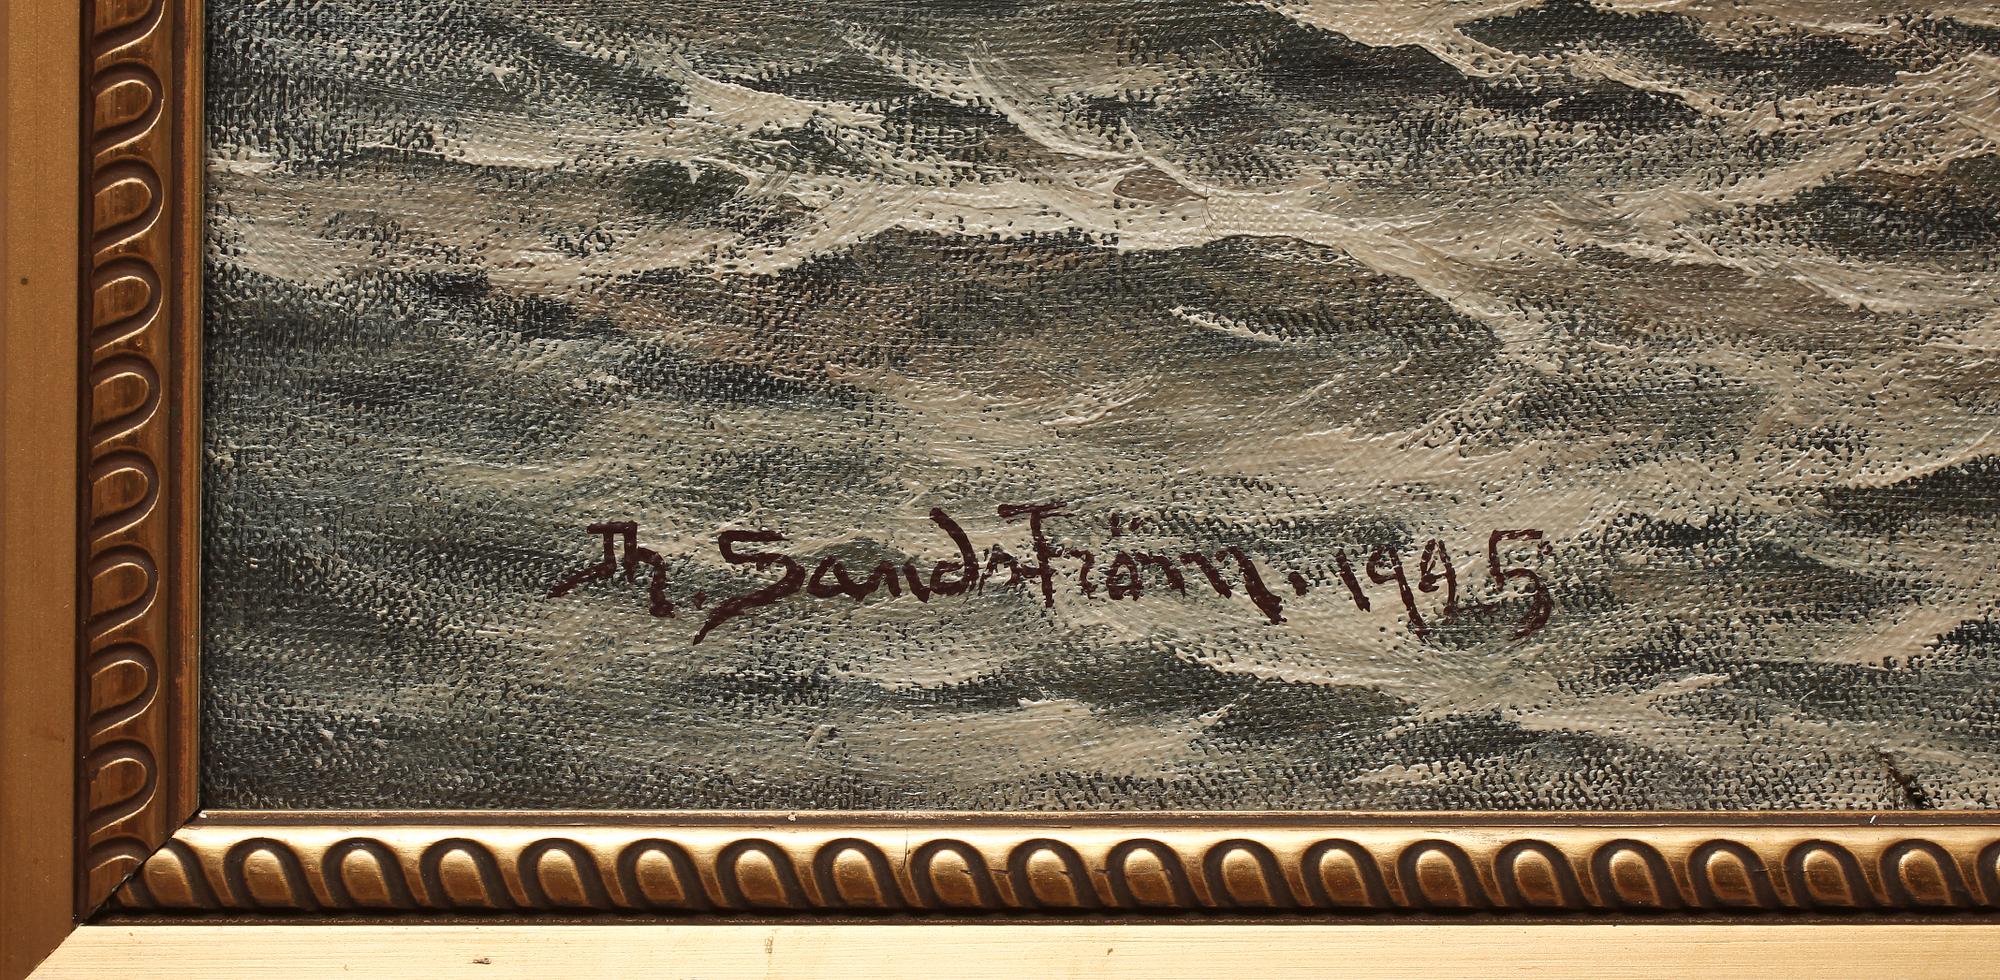 Th. Sandström. 1995